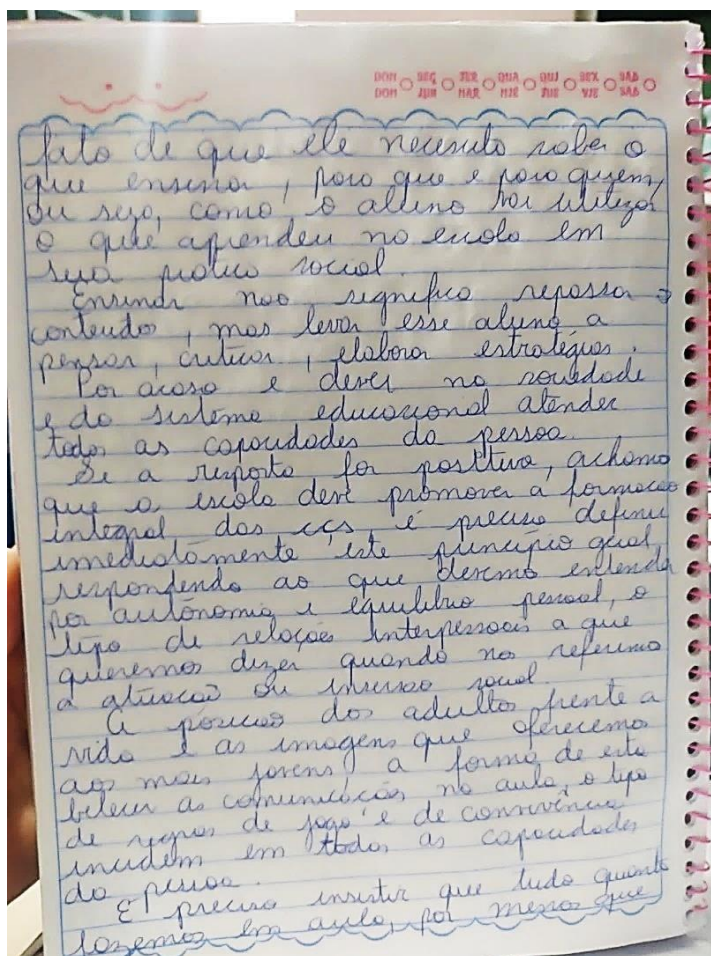 DOM SEG TER QUA QUI SEX SAB
DOM LUN MAR MIE JUE VIE SAB
fato de que ele necessita saber o
que ensinar, para que e para quem,
ou seja, como o aluno vai utilizar
o que aprendeu na escola em
sua prática social.
Ensinar não significa repassar
conteudos, mas levar esse aluno a
pensar, criticar, elaborar estratégias.
Por acaso e dever na sociedade
e do sistema educacional atender
todas as capacidades da pessoa.
Se a resposta for positiva, achamo
que a escola deve promover a formacão
integral das cçs, é preciso definir
imediatamente este principio geral,
respondendo ao que devemo entender
por autonomia e equilibrio pessoal, o
tipo de relações interpessoais a que
queremos dizer quando nos referimo
a atuacão ou insercao social.
A posicao dos adultos frente a
vida e as imagens que oferecemos
aos mais jovens, a forma de esta
belecer as comunicacões na aula, o tipo
de regras de jogo e de convivência
incidem em todas as capacidades
da pessoa.
É preciso insistir que tudo quanto
fazemos em aula, por menos que